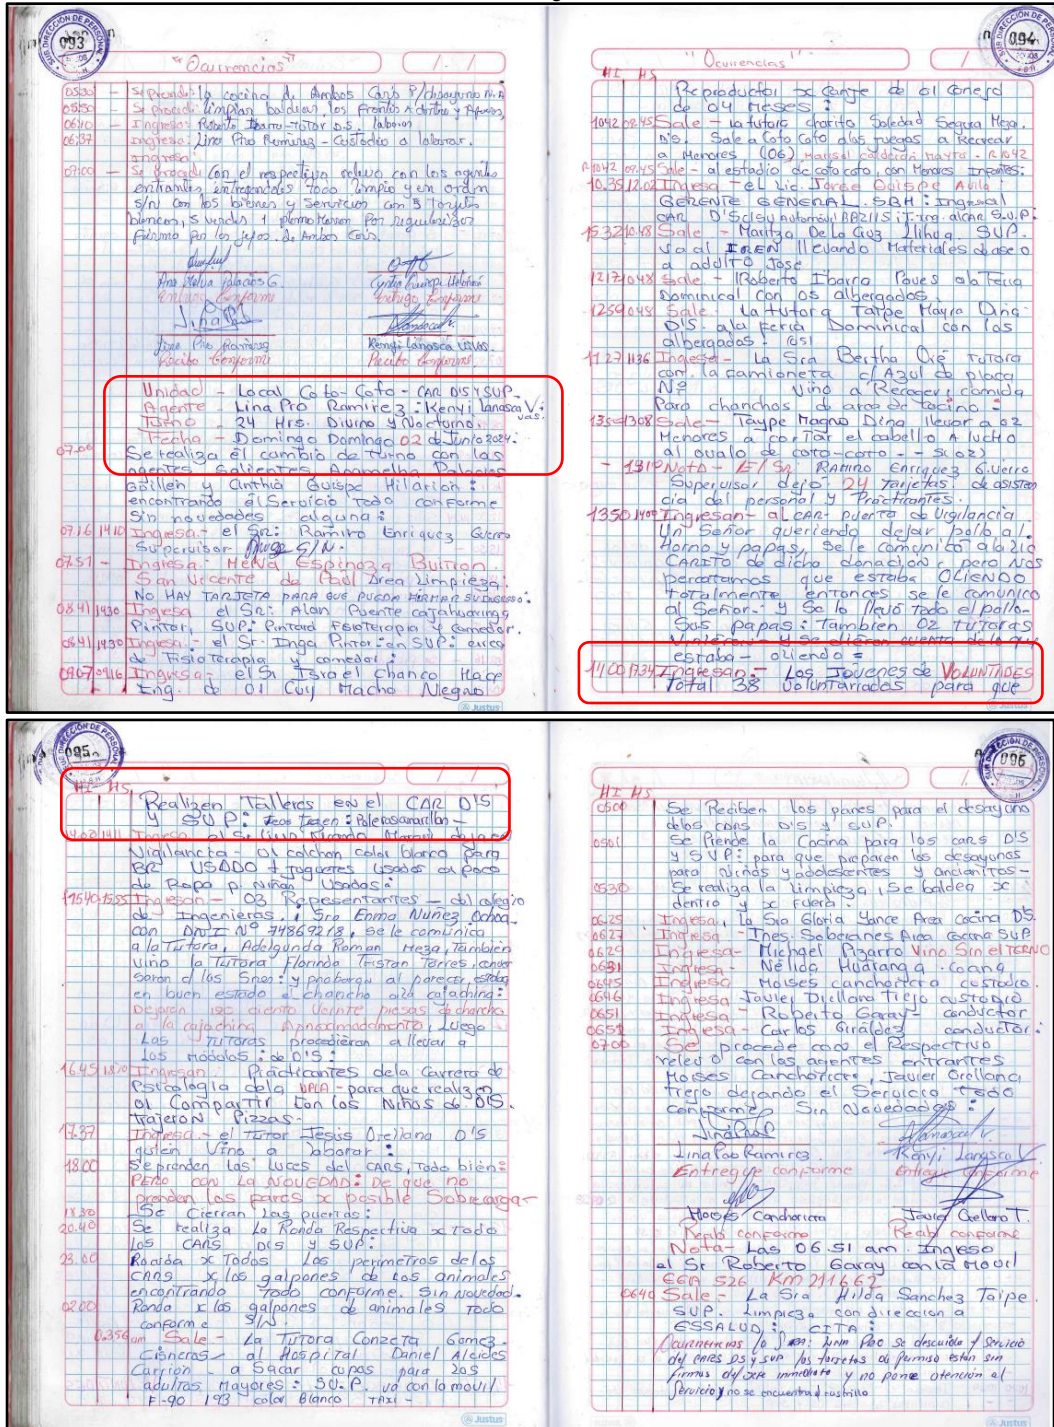 093
"Ocurrencias"
0500 - Se prende la cocina de Ambos Cars P/desayuno N.A
0550 - Se procede limpiar, baldear, los frentes Adentro y Afuera,
0610 - Ingreso: Roberto Ibarra - TUTOR D.S. labores
06:37 Ingreso: Lina Pro Ramirez - Custodio a laborar.
07:00 - Se procede con el respectivo relevo con los agentes
entrantes, entregandoles todo limpio y en orden
s/n con los bienes y servicios con 5 Tarjetas
blancos, 5 verdes 1 plomo Por Regularizar
firma por los jefes. de Ambos Cars.
Ana Melva Palacios G.
Entrego Conforme
Cyntia Quispe Hilarión
Entrego Conforme
Lina Pro Ramirez
Recibo Conforme
Kenyi Lanasca Vivas.
Recibo Conforme
Unidad - Local Coto-Coto - CAR DIS Y SUP.
Agente - Lina Pro Ramirez : Kenyi Lanasca Vi
vas.
Turno - 24 Hrs. Diurno y Nocturno.
Fecha - Domingo Domingo 02 de Junio 2024:
07.00 Se realiza el cambio de Turno con las
agentes Salientes Anamelba Palacios
Guillen y Cinthia Quispe Hilarion :
encontrando el Servicio Todo conforme
Sin novedades alguna :
07.16 1410 Ingresa - el Sr: Ramiro Enriquez Guerra
Supervisor S/N.
07.51 - Ingresa: Melva Espinoza Buitron.
San Vicente de Paul Area Limpieza.
NO HAY TARJETA PARA QUE PUEDA FIRMAR SU INGRESO:
08.41 1430 Ingresa el Sr: Alan Puente Cajahuaringa
Pintor, SUP: Pintará Fisioterapia y Comedor.
0841 1430 Ingresa: - el Sr. Inga Pintor: en SUP: area
de Fisioterapia y comedor :
0907 0916 Ingresa - el Sr Israel Chanco Hace
Ing. de 01 Cuy Macho Negro
Justus
094
"Ocurrencias"
HI HS
Reproductor x Cange de 01 Conejo
de 04 Meses :
1042 09:45 Sale - La tutora Charito Soledad Segura Meza.
D'S. Sale a Coto Coto a los juegos a Recrear
a Menores (06) Marisol Calderón Mayra - R1042
R1042 09.45 Sale - al estadio de coto coto, con Menores Infantes:
10.35 12.02 Ingresa - el Lic. Jorge Quispe Avila
GERENTE GENERAL. SBH : Ingresa al
CAR D'S S.U.P:
1532 10.48 Sale - Maritza De La Cruz Llihua SUP.
Va al IREN llevando Materiales de aseo
a adulto Jose
1217 1048 Sale - Roberto Ibarra Poves a la Feria
Dominical con 05 albergados.
1259 1048 Sale : La tutora Taype Mayra Dina
D'S. a la Feria Dominical con los
albergados : (05)
1127 1136 Ingresa - La Sra Bertha Oré TUTORA
con la camioneta c/ Azul de placa
Nº Vino a Recoger comida
Para chanchos de area de cocina :
1354 1308 Sale - Taype Magno Dina llevar a 02
Menores a cortar el cabello A Lucho
al ovalo de coto-coto - - S(02)
- 1310 Nota - El Sr. RAMIRO Enriquez Guerra
Supervisor dejó 24 Tarjetas de asisten
cia del personal y Practicantes.
1350 1400 Ingresan - al CAR puerta de Vigilancia
Un Señor queriendo dejar pollo al
Horno y papas, se le comunicó a la Lic
CARITO de dicho donacion, pero nos
percatamos que estaba OLIENDO
Totalmente entonces se le comunicó
al Señor.- y Se lo llevó Todo el pollo -
Sus papas : Tambien 02 Tutoras
Vinieron - y Se dieron cuenta de lo que
estaba - oliendo =
1400 1734 Ingresan - Los Jovenes de VOLUNTADES
Total 38 Voluntariados para que
Justus
095
HI HS
Realizen Talleres en el CAR D'S
y SUP: Polerasamarillas -
1400 1411
Vigilancia 01 colchon color blanco para
BB USADO + juguetes usados un poco
de Ropa p. Niñas Usadas :
1540-1555 Ingresan - 03 Representantes - del colegio
de Ingenieros, Sra Enma Nuñez Ochoa
con DNI Nº 74869218, se le comunica
a la Tutora, Adelgunda Roman Meza, También
Vino la TUTORA Florinda Tristan Torres, conver
saron c/ los Sras: y probaron al parecer, estaba
en buen estado el chancho a la cajachina:
Dejaron 120 ciento veinte piesas de chancho
a la cajachina Aproximadamente, Luego
Las TUTORAS procedieron a llevar a
Los Módulos : de D'S :
1645 1810 Ingresan - Practicantes de la Carrera de
Psicologia de la UPLA - para que realizen
01 Compartir con los Niños de DIS.
Trajeron Pizzas -
17.37 Ingresa - el TUTOR Jesus Orellana D'S
quien Vino a laborar :
18.00 Se prenden las luces del CARS, Todo bien :
PERO con La NOVEDAD: De que no
prenden los faros x posible Sobrecarga -
1830 Se Cierran las puertas :
20.40 Se realiza La Ronda Respectiva x Todo
los CARS DIS y SUP:
23.00 Ronda x Todos Los perimetros de los
CARS x los galpones de los animales
encontrando Todo conforme. Sin Novedad.
0200 Ronda x los galpones de animales Todo
conforme S/N
0.356 am Sale - La TUTORA Conzeta Gomez
Cisneros - al Hospital Daniel Alcides
Carrion - a Sacar cupos para 205
adultos Mayores : SU.P. va con la movil
F-90 193 color Blanco TAXI -
Justus
096
HI HS
0500 Se Reciben los panes para el desayuno
delos cars D'S y SUP.
0501 Se Prende la Cocina para los cars D'S
y SUP: para que preparen los desayunos
para Niños y adolescentes y ancianitos -
0530 Se realiza la Limpieza, Se baldea x
dentro y x Fuera :
0625 Ingresa, la Sra Gloria Yance Area cocina DS.
0627 Ingresa - Ines. Soberanes Area Cocina SUP
0629 Ingresa - Michael Pizarro Vino Sin el TERNO
0631 Ingresa - Nélida Huaranga cocina
0645 Ingresa Moises canchoricra custodio.
0646 Ingresa Javier Orellana Trejo custodio
0651 Ingresa - Roberto Garay - conductor
0652 Ingresa - Carlos Giráldez conductor :
0700 Se procede con el Respectivo
relevo con los agentes entrantes
Moises Canchoricra, Javier Orellana
Trejo dejando el Servicio Todo
conforme Sin Novedades :
Lina Pro Ramirez
Entregue conforme
Kenyi Lanasca V
Entregue conforme
Moises Canchoricra
Recibi conforme
Javier Orellana T.
Recibi conforme
Nota - Las 06.51 am. Ingreso
el Sr Roberto Garay con la Movil
EGA 526 KM 211662
0640 Sale - La Sra Hilda Sanchez Taipe.
SUP. Limpieza con direccion a
ESSALUD : CITA :
Ocurrencias LINA PRO se descuida / Servicio
del CARS DS y SUP las tarjetas de permiso estan sin
firmas del Jefe inmediato y no pone atención al
Servicio y no se encuentra
Justus